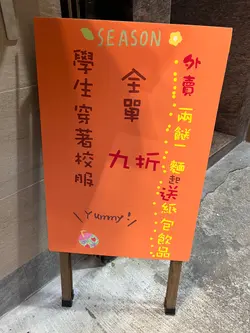 SEASON
外賣兩餸一麵起送紙包飲品
全單九折
學生穿著校服
Yummy!